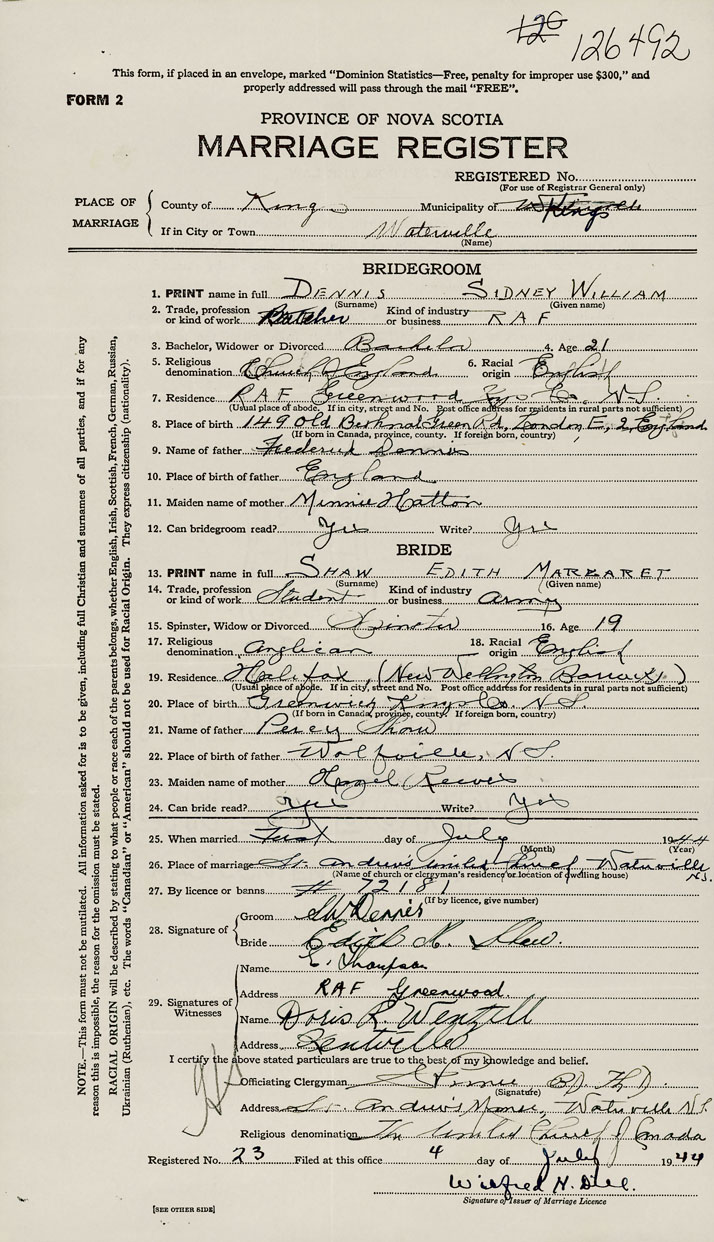 126 126492
This form, if placed in an envelope, marked “Dominion Statistics—Free, penalty for improper use $300,” and
properly addressed will pass through the mail “FREE”.
FORM 2
PROVINCE OF NOVA SCOTIA
MARRIAGE REGISTER
REGISTERED No.
(For use of Registrar General only)
PLACE OF MARRIAGE
County of Kings Municipality of Kings
If in City or Town Waterville
(Name)
BRIDEGROOM
1. PRINT name in full DENNIS SIDNEY WILLIAM
(Surname) (Given name)
2. Trade, profession or kind of work Butcher Kind of industry or business RAF
3. Bachelor, Widower or Divorced Bachelor 4. Age 21
5. Religious denomination Church of England 6. Racial origin English
7. Residence RAF Greenwood Kgs Co. N.S.
(Usual place of abode. If in city, street and No. Post office address for residents in rural parts not sufficient)
8. Place of birth 149 Old Bethnal Green Rd, London E, 2 England
(If born in Canada, province, county. If foreign born, country)
9. Name of father Frederick Dennis
10. Place of birth of father England
11. Maiden name of mother Minnie Hatton
12. Can bridegroom read? Yes Write? Yes
BRIDE
13. PRINT name in full SHAW EDITH MARGARET
(Surname) (Given name)
14. Trade, profession or kind of work Student Kind of industry or business Army
15. Spinster, Widow or Divorced Spinster 16. Age 19
17. Religious denomination Anglican 18. Racial origin English
19. Residence Halifax, (New Wellington Barracks)
(Usual place of abode. If in city, street and No. Post office address for residents in rural parts not sufficient)
20. Place of birth Greenwich Kings Co. N.S.
(If born in Canada, province, county. If foreign born, country)
21. Name of father Percy Shaw
22. Place of birth of father Wolfville, N.S.
23. Maiden name of mother Hazel Reeves
24. Can bride read? Yes Write? Yes
25. When married First day of July 1944
(Month) (Year)
26. Place of marriage St. Andrew's United Church Waterville N.S.
(Name of church or clergyman's residence or location of dwelling house)
27. By licence or banns # 72181
(If by licence, give number)
28. Signature of Groom SW Dennis
Bride Edith M. Shaw.
29. Signatures of Witnesses
Name E. Thompson
Address RAF Greenwood
Name Doris R. Wentzell
Address Kentville
I certify the above stated particulars are true to the best of my knowledge and belief.
Officiating Clergyman B.D. Th D.
(Signature)
Address St. Andrew's Manse, Waterville N.S.
Religious denomination The United Church of Canada
Registered No. 23 Filed at this office 4 day of July 1944
Wilfred H. Dill.
Signature of Issuer of Marriage Licence
[SEE OTHER SIDE]
NOTE.—This form must not be mutilated. All information asked for is to be given, including full Christian and surnames of all parties, and if for any
reason this is impossible, the reason for the omission must be stated.
RACIAL ORIGIN will be described by stating to what people or race each of the parents belongs, whether English, Irish, Scottish, French, German, Russian,
Ukrainian (Ruthenian), etc. The words “Canadian” or “American” should not be used for Racial Origin. They express citizenship (nationality).